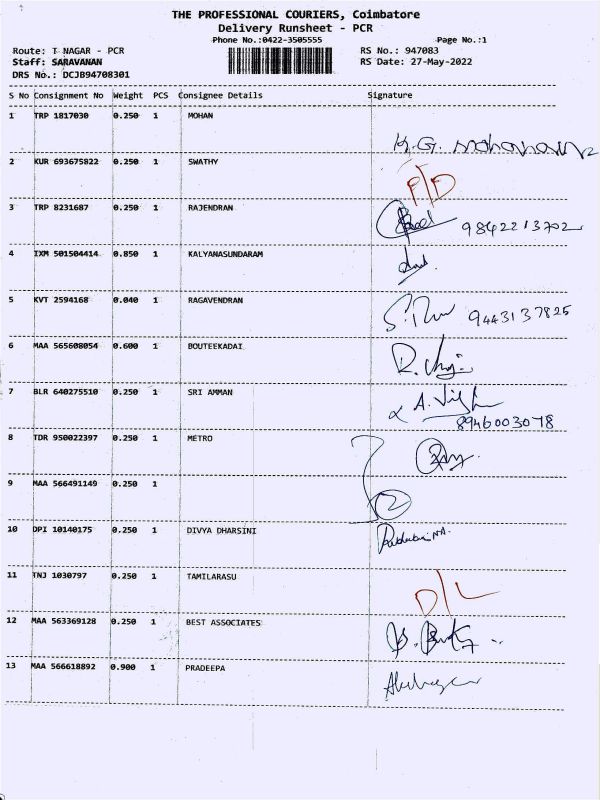 THE PROFESSIONAL COURIERS, Coimbatore
Delivery Runsheet - PCR
Phone No.:0422-3505555 Page No.:1
Route: T NAGAR - PCR RS No.: 947083
Staff: SARAVANAN RS Date: 27-May-2022
DRS No.: DCJB94708301
S No Consignment No Weight PCS Consignee Details Signature
1 TRP 1817030 0.250 1 MOHAN
K.G.
2 KUR 693675822 0.250 1 SWATHY
3 TRP 8231687 0.250 1 RAJENDRAN
9842213702
4 IXM 501504414 0.850 1 KALYANASUNDARAM
5 KVT 2594168 0.040 1 RAGAVENDRAN
9443137825
6 MAA 565608054 0.600 1 BOUTEEKADAI
7 BLR 640275510 0.250 1 SRI AMMAN
8946003078
8 TDR 950022397 0.250 1 METRO
9 MAA 566491149 0.250 1
2
10 DPI 10140175 0.250 1 DIVYA DHARSINI
11 TNJ 1030797 0.250 1 TAMILARASU
D/L
12 MAA 563369128 0.250 1 BEST ASSOCIATES
13 MAA 566618892 0.900 1 PRADEEPA